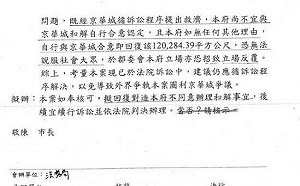 問題，既經京華城循訴訟程序提出救濟，本府尚不宜與
京華城和解自行合意認定，且本府如無任何其他理由，
自行與京華城合意即回復該120,284.39平方公尺，恐無法
說服社會大眾，於都委會本府立場亦恐招致立場反覆。
綜上，考量本案現已於法院訴訟中，建議仍應循訴訟程
序解決，以免導致外界爭執本案圖利京華城爭議。
擬辦：本案如奉核可，擬回復對造本府不同意辦理和解事宜，後
續宜續行訴訟並依法院判決辦理。當否？請核示
敬陳 市長
會辦單位：法務局